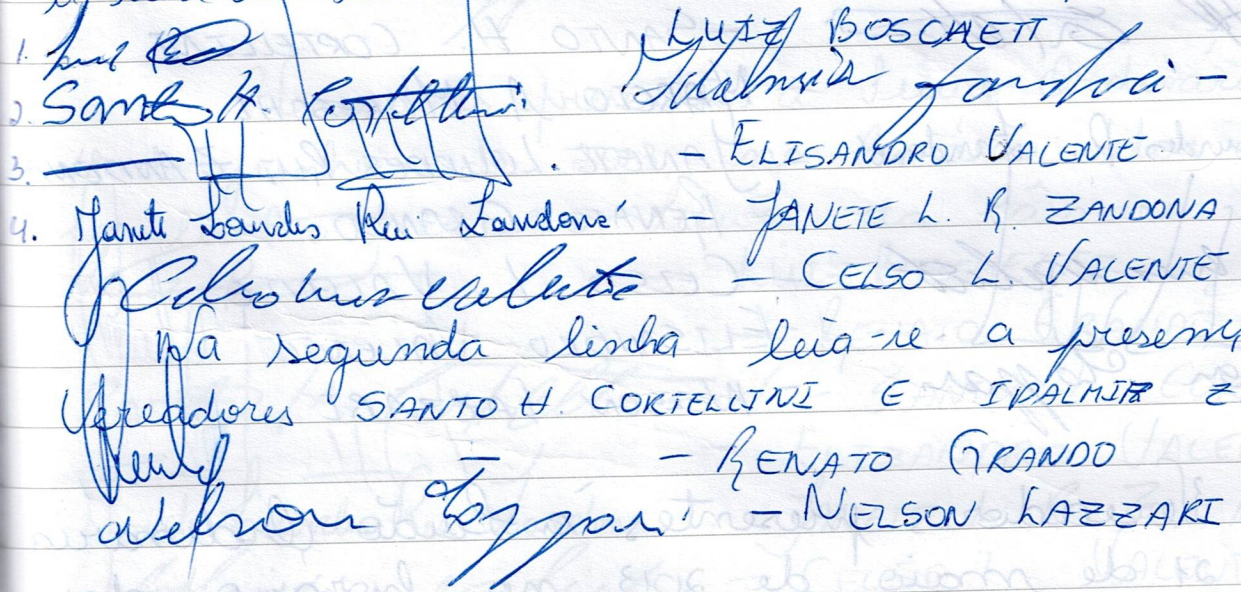 1. LUIZ BOSCHETT
2. Santo H. Cortellini Idalmir
3. - ELISANDRO VALENTE
4. Janete Lourdes Rui Zandoná - JANETE L. R. ZANDONA
Celso Luiz Valente - CELSO L. VALENTE
Na segunda linha leia-se a presen
Vereadores SANTO H. CORTELLINI E IDALMIR Z
- - RENATO GRANDO
Nelson Lazzari - NELSON LAZZARI